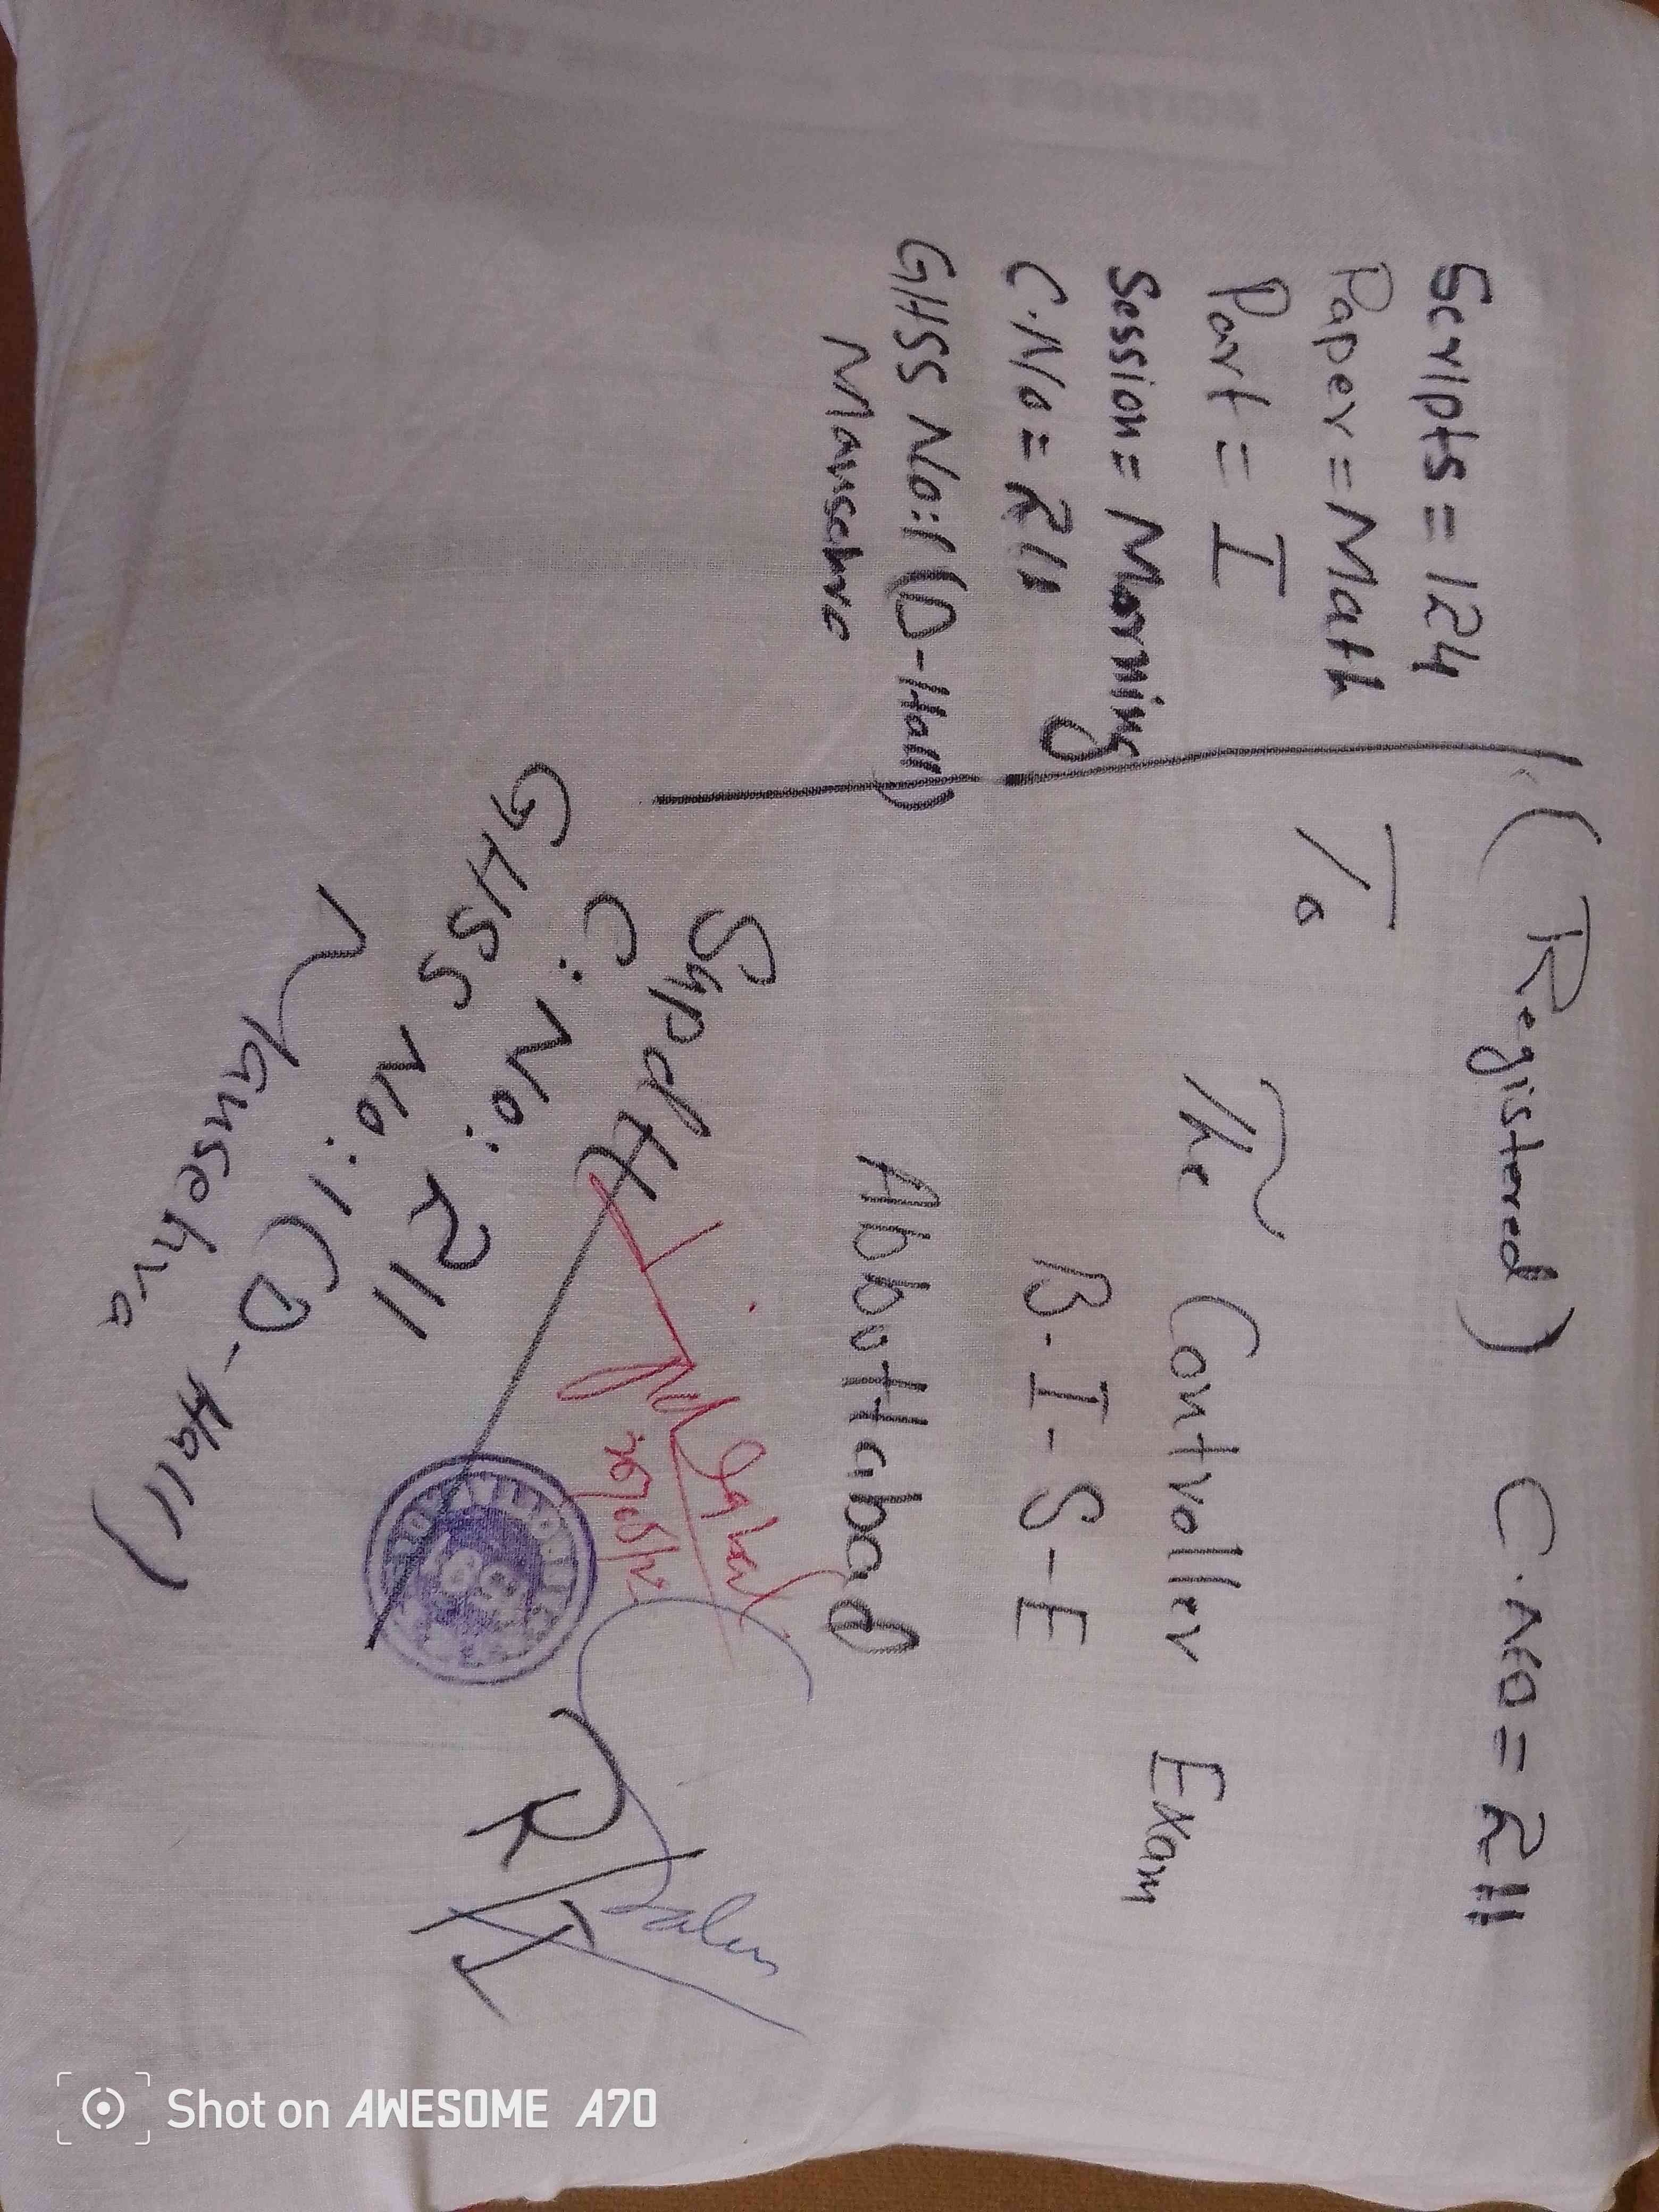 (Registered) C.No = R11
Scripts = 124
Paper = Math
Part = I
Session = Morning
C.No = R11
GHSS No:1(D-Hall)
Mansehra
To
The Controller Exam
B-I-S-E
Abbottabad
Supdtt
C: No: R11
GHSS No: 1 (D-Hall)
Mansehra
R/I
Shot on AWESOME A70